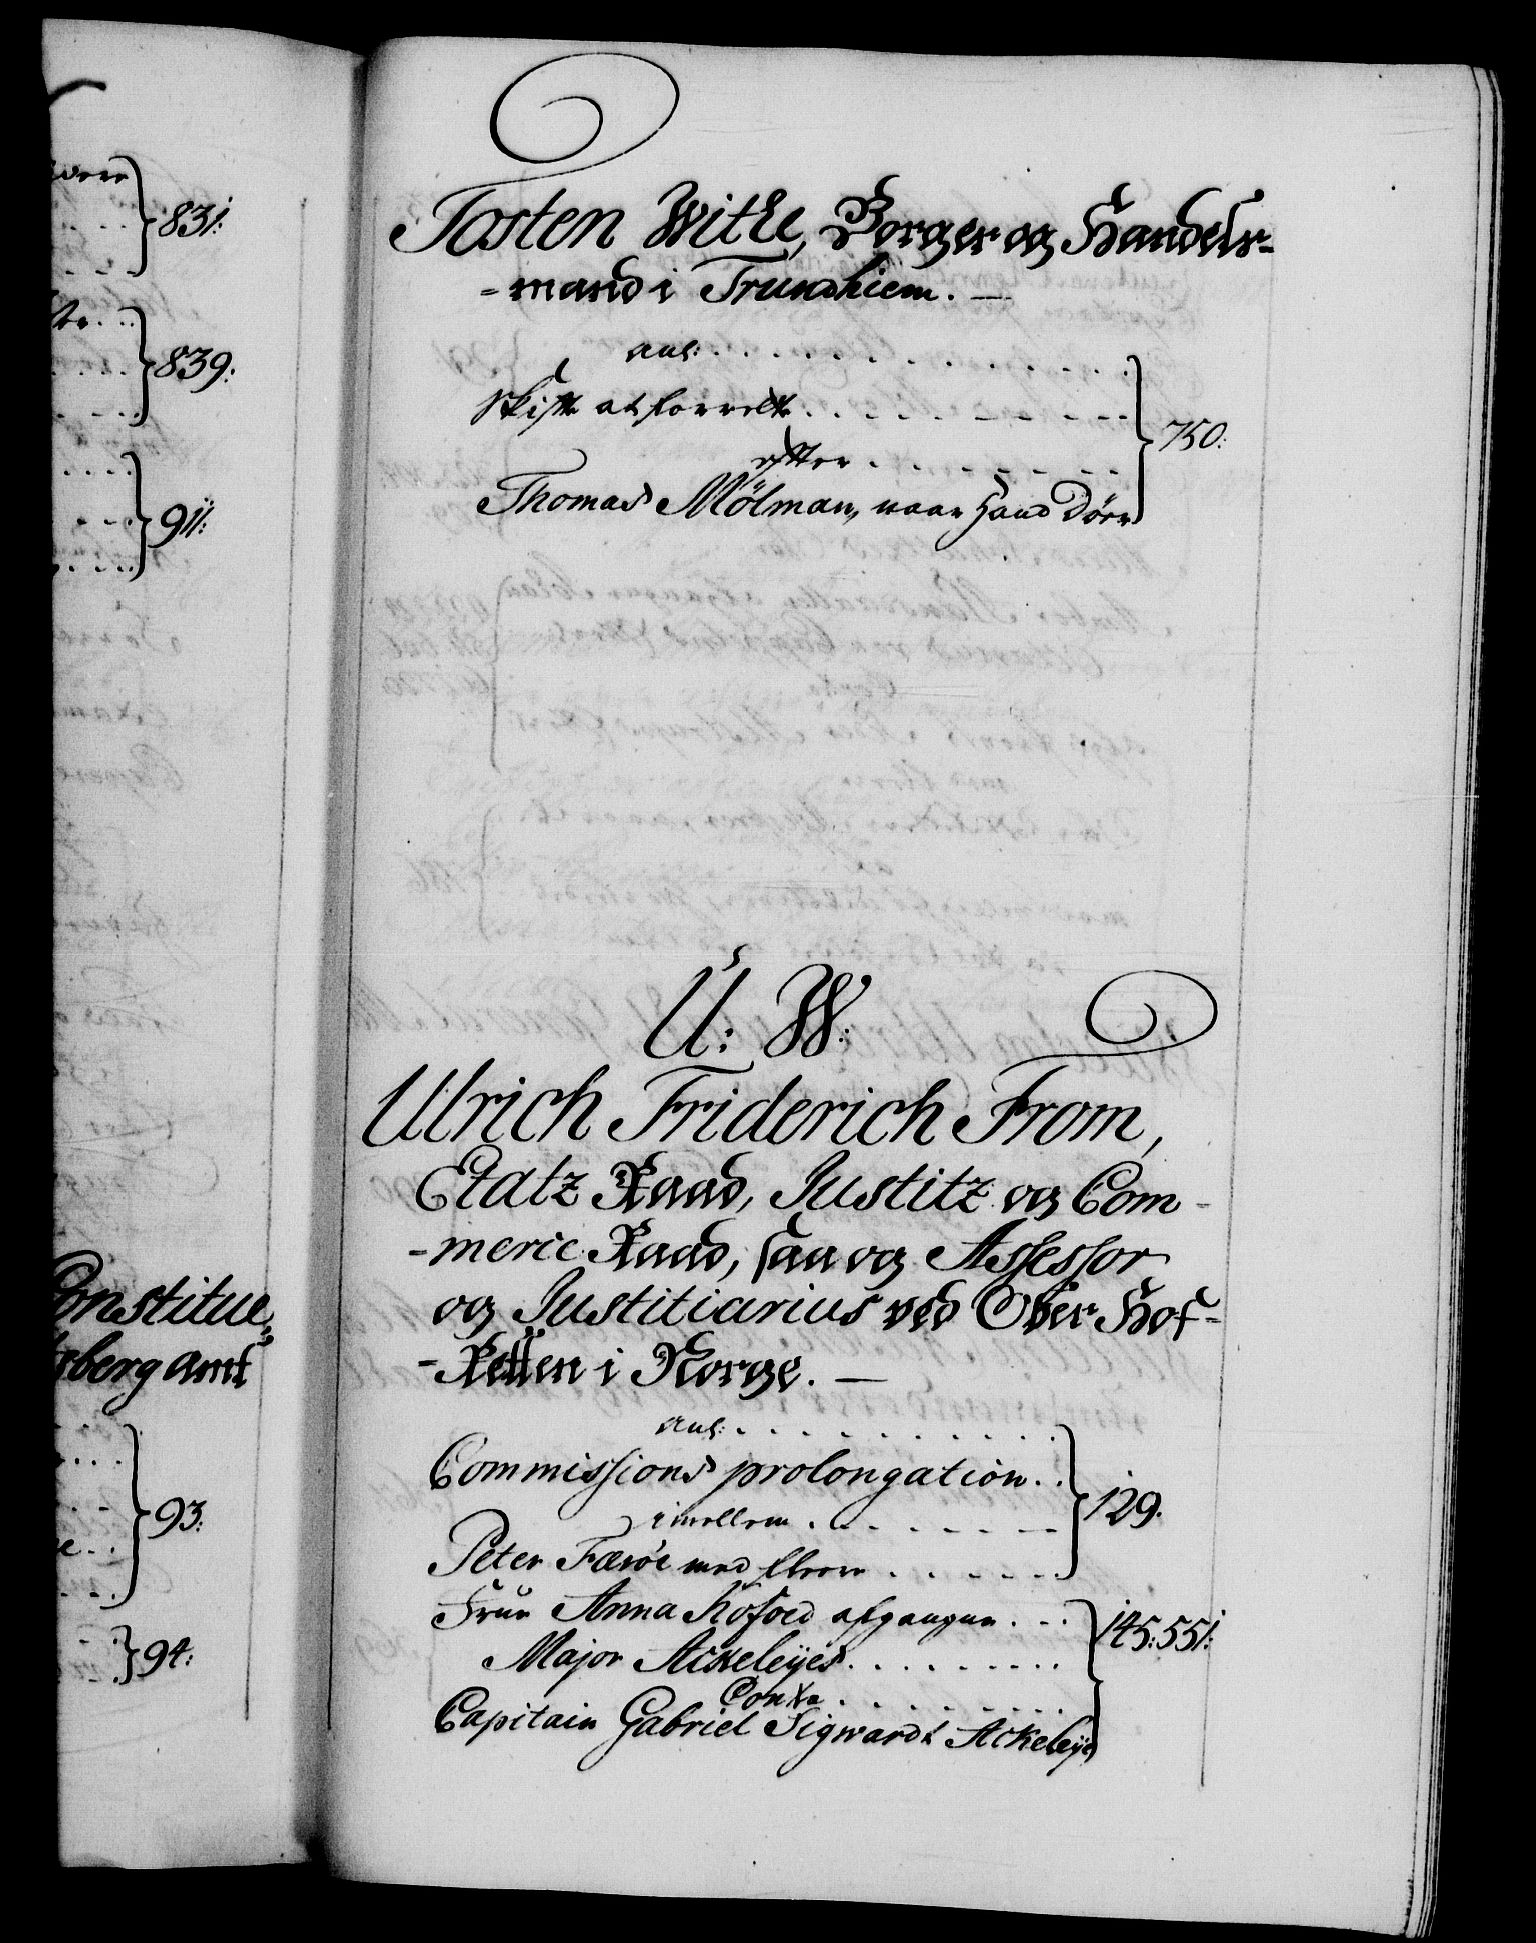 831:
839:
911:
Constitue
sberg amt
93:
94:
Tosten Withe, Borger og Handels-
-mand i Trundhiem. —
anl: . . . . . . . . . .
Skifte at forrette . . . . . . . . . 750:
efter . . . . . . . .
Thomas Mölman, naar hand döer
U: W:
Ulrich Friderich From,
Etatz Raad, Justitz og Com-
-merce Raad, saa og Assessor
og Justitiarius ved Ober Hof-
-Retten i Norge. —
anl: . . . . . . . . . .
Commissions prolongation . . 129.
imellem . . . . . . . .
Peter Færöe med flere . . . . . .
Frue Anna Kofoed afgangne . . . 145: 551:
Major Ackeleÿes . . . . . . . . .
Contra . . . . . . . .
Capitain Gabriel Sigwardt Ackeleÿe